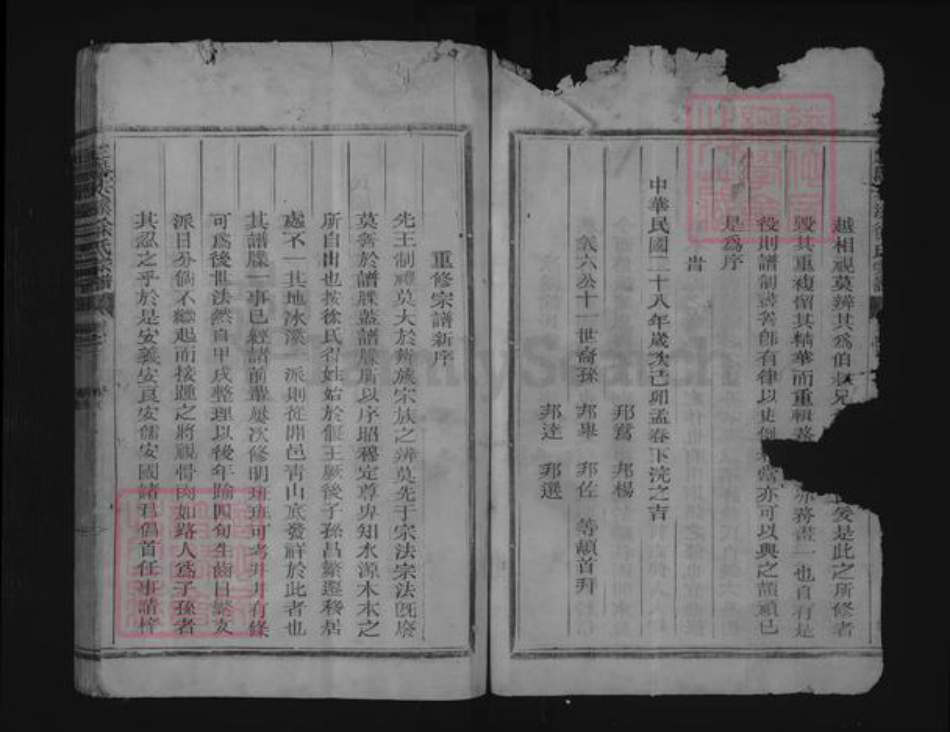 越相視莫辨其爲伯叔兄 爰是此之所修者
毀其重複留其精華而重輯 亦務盡一也自有是
役則譜制盡善即有律以史例 當亦可以興之頡頏已
是爲序
旹
中華民國二十八年歲次己卯孟春下浣之吉
義六公十一世裔孫
邦鴛 邦楊
邦舉 邦佐 等頓首拜
邦達 邦選
重修宗譜新序
先王制禮莫大於黃族宗族之辨莫先于宗法宗法旣廢
莫善於譜牒蓋譜牒所以序昭穆定尊卑知水源木本之
所自出也按徐氏得姓始於偃王厥後子孫昌繁遷移居
處不一其地冰溪一派則從開邑靑山底發祥於此者也
其譜牒一事已經諸前輩屢次修明班班可考井井有條
可爲後世法然自甲戌整理以後年踰四旬生齒日繁支
派日分倘不繼起而接踵之將視骨肉如路人爲子孫者
其忍之乎於是安義安良安儒安國諸君倡首任事請梓